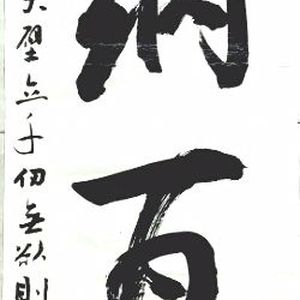 納百
大壁立千仞無欲則